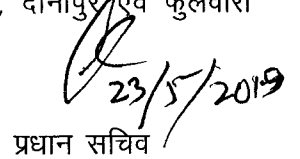 दानापुर एवं फुलवारी
23/5/2019
प्रधान सचिव